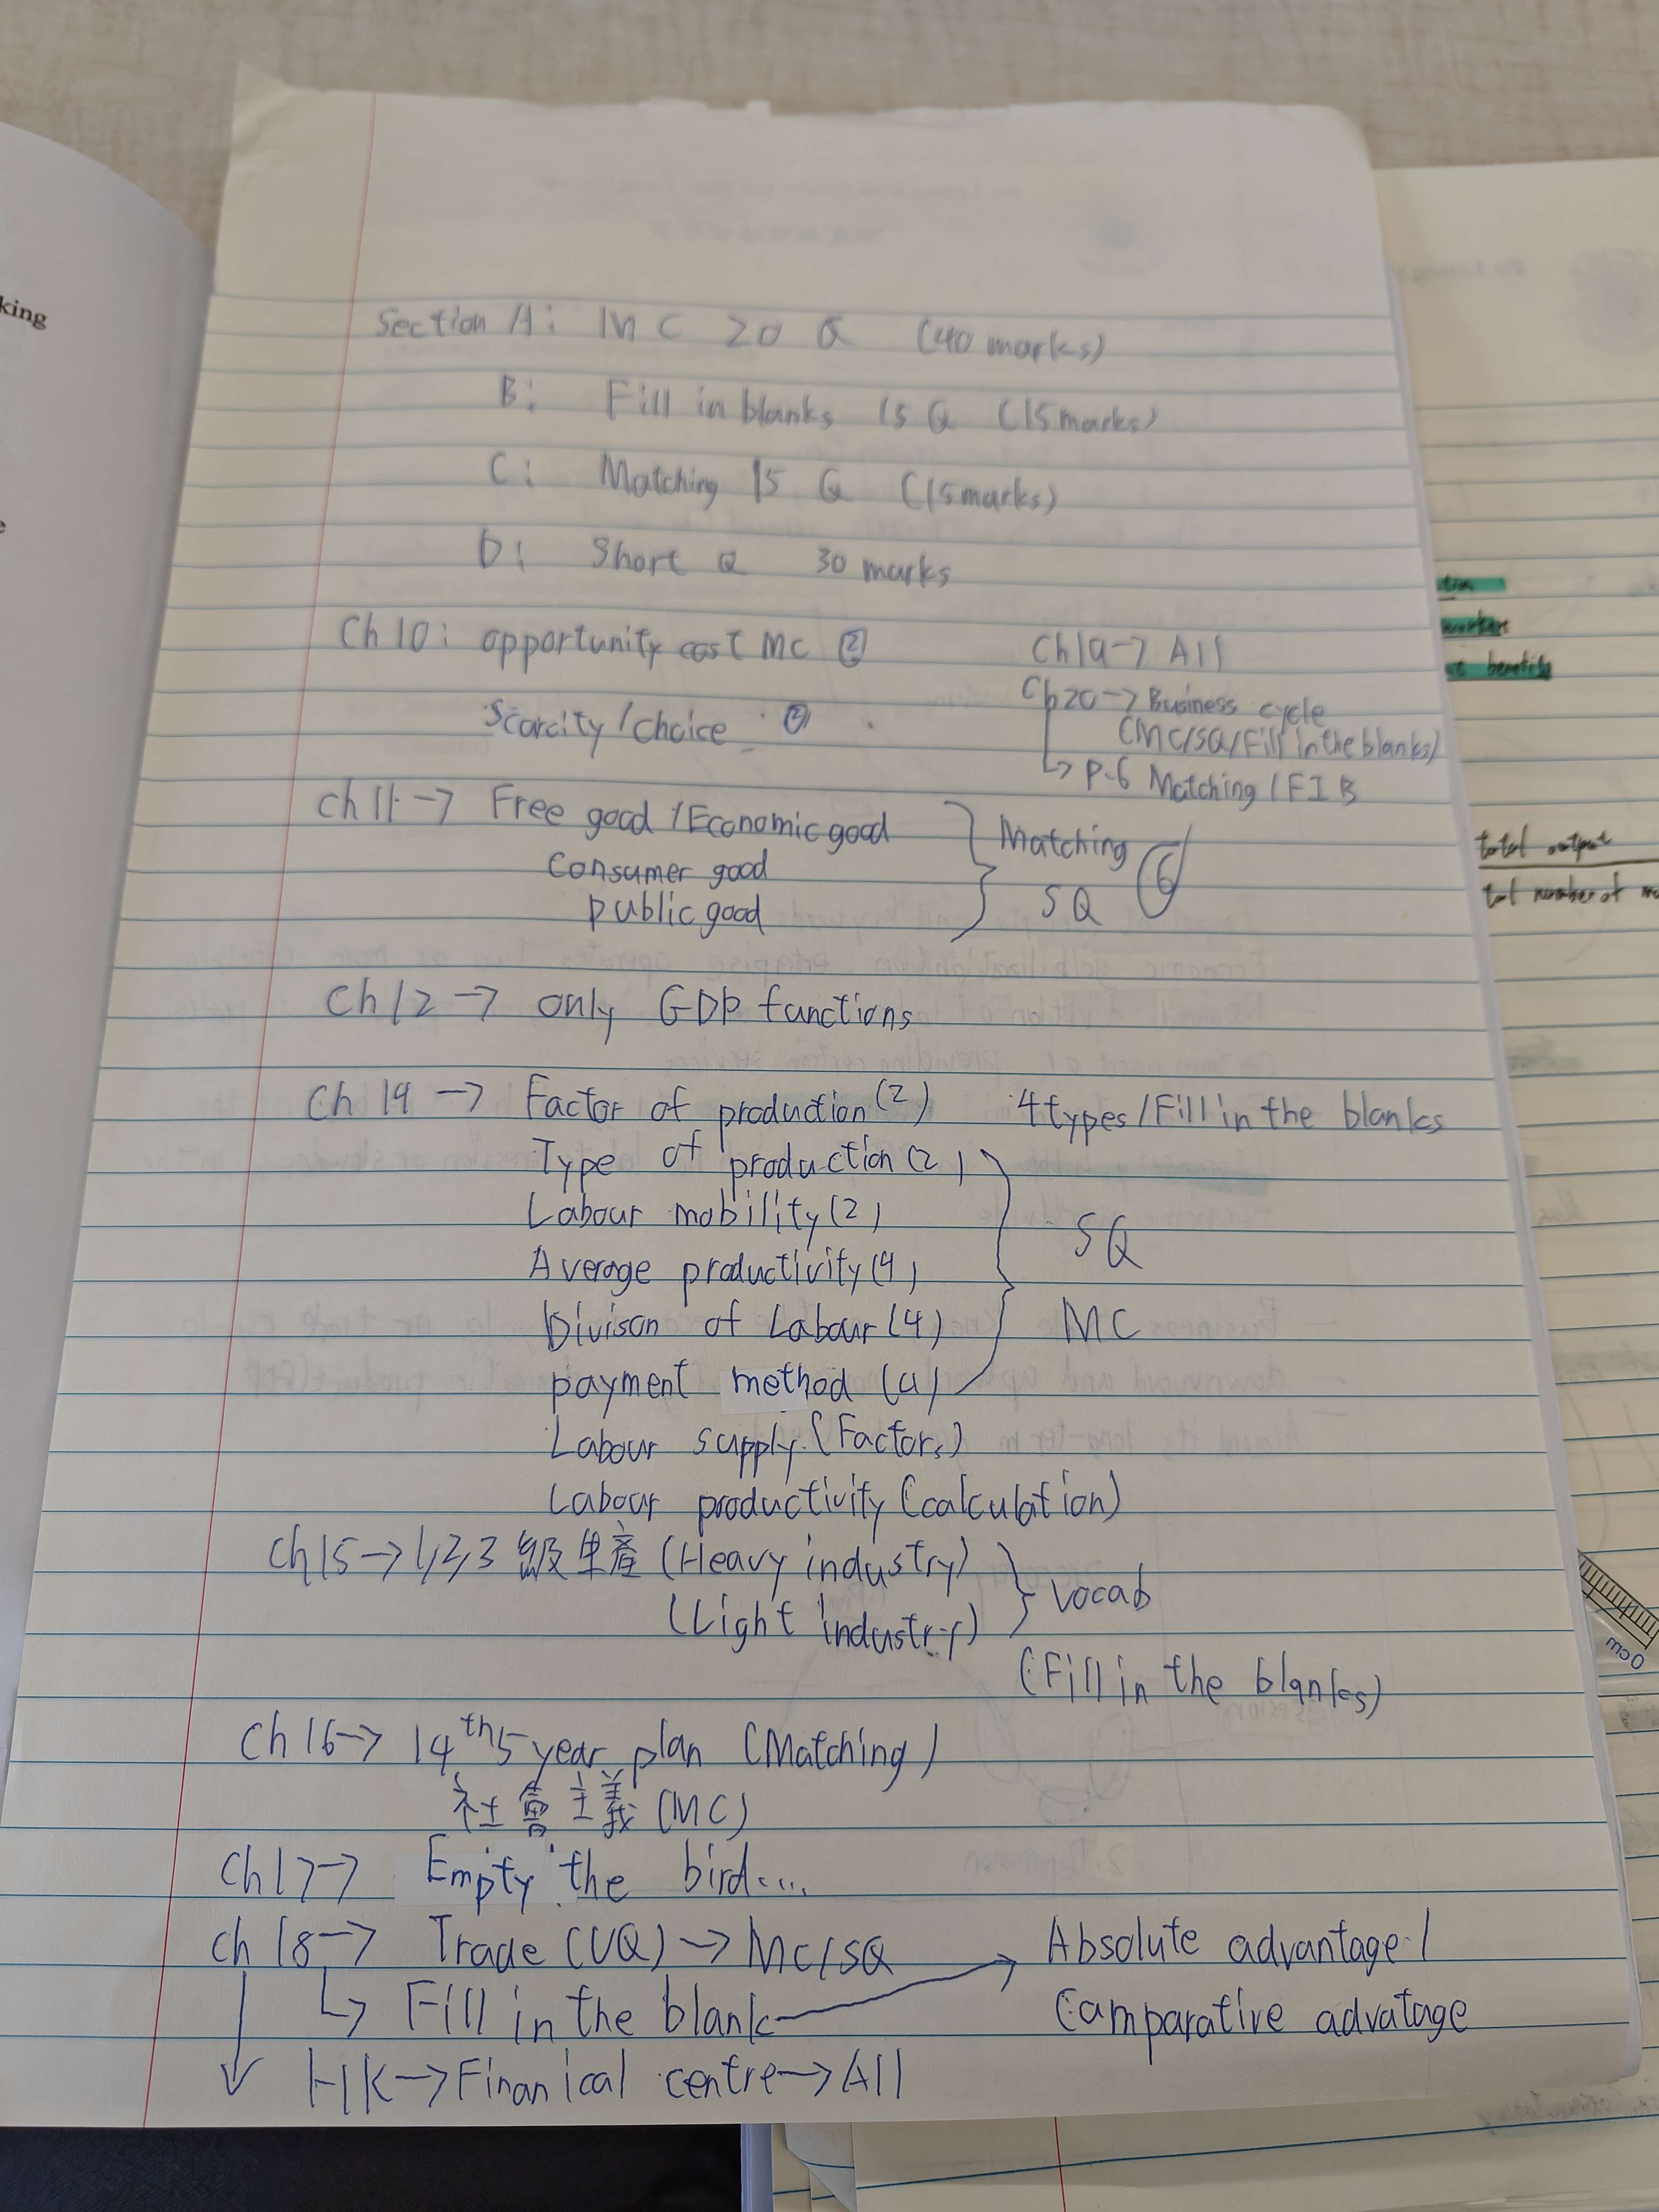 Section A: MC 20 Q (40 marks)
B: Fill in blanks 15 Q (15 marks)
C: Matching 15 Q (15 marks)
D: Short Q 30 marks
Ch 10: opportunity cost MC ②
Scarcity / choice ②
Ch19 → All
Ch20 → Business cycle
(MC/SQ/Fill in the blanks)
↳ P.6 Matching / FIB
Ch 11 → Free good / Economic good
Consumer good
public good
Matching
SQ 6
Ch 12 → only GDP functions
Ch 14 → Factor of production (2) 4 types / Fill in the blanks
Type of production (2)
Labour mobility (2)
Average productivity (4)
Divison of Labour (4)
payment method (4)
SQ
MC
Labour supply (Factors)
Labour productivity (calculation)
Ch 15 → 1,2,3 級生產 (Heavy industry)
(Light industry)
vocab
(Fill in the blanks)
Ch 16 → 14th 5 year plan (Matching)
社會主義 (MC)
Ch 17 → Empty the bird....
Ch 18 → Trade (UQ) → MC/SQ
↳ Fill in the blank → Absolute advantage /
Comparative advatage
HK → Finanical centre → All
king
e
total output
total number of
benefits
0cm